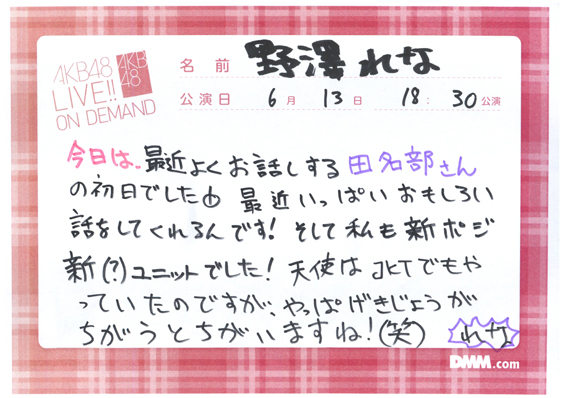 AKB48
LIVE!!
ON DEMAND
AKB
48
名前 野澤れな
公演日 6月 13日 18:30公演
今日は、最近よくお話しする田名部さん
の初日でした 最近いっぱいおもしろい
話をしてくれるんです! そして私も新ポジ
新(?)ユニットでした! 天使はJKTでもや
っていたのですが、やっぱげきじょうが
ちがうとちがいますね!(笑) れな
DMM.com